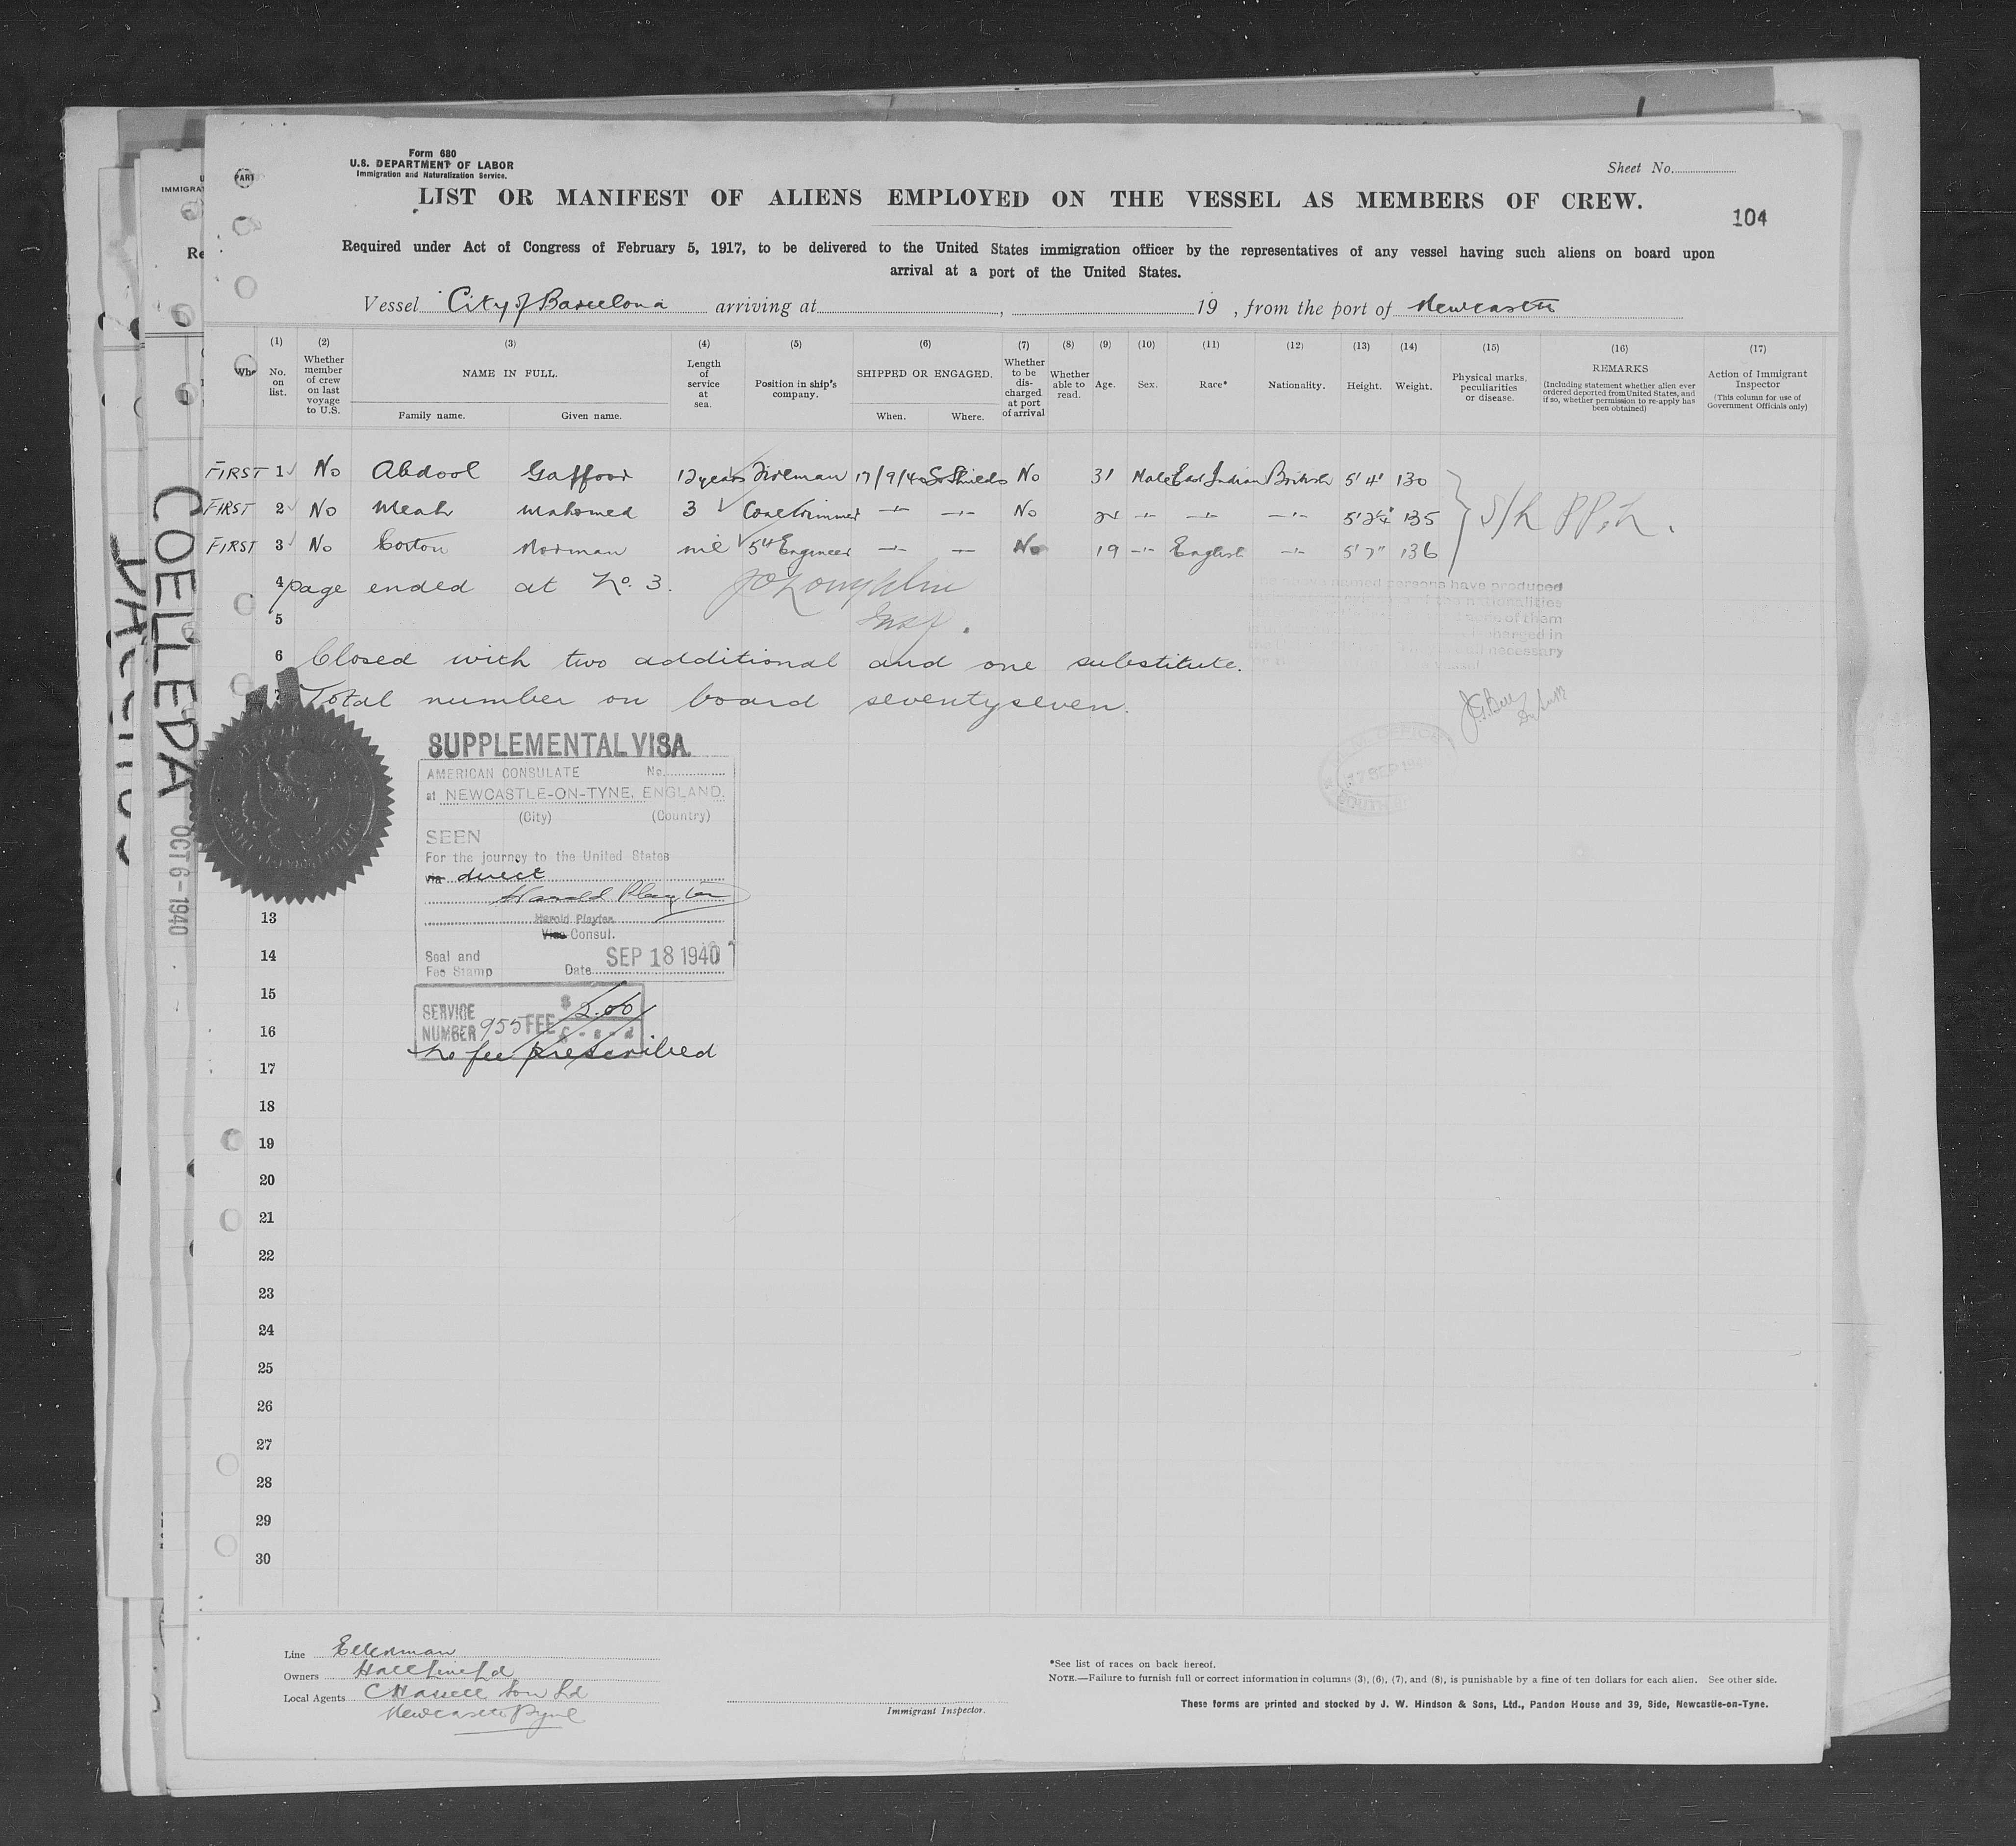 Form 680
U.S. DEPARTMENT OF LABOR
Immigration and Naturalization Service.
Sheet No.
LIST OR MANIFEST OF ALIENS EMPLOYED ON THE VESSEL AS MEMBERS OF CREW.
104
Required under Act of Congress of February 5, 1917, to be delivered to the United States immigration officer by the representatives of any vessel having such aliens on board upon
arrival at a port of the United States.
Vessel City of Barcelona arriving at , 19 , from the port of Newcastle
(1) No. on list.
(2) Whether member of crew on last voyage to U.S.
(3) NAME IN FULL. Family name. Given name.
(4) Length of service at sea.
(5) Position in ship's company.
(6) SHIPPED OR ENGAGED. When. Where.
(7) Whether to be discharged at port of arrival
(8) Whether able to read.
(9) Age.
(10) Sex.
(11) Race*
(12) Nationality.
(13) Height.
(14) Weight.
(15) Physical marks, peculiarities or disease.
(16) REMARKS (Including statement whether alien ever ordered deported from United States, and if so, whether permission to re-apply has been obtained)
(17) Action of Immigrant Inspector (This column for use of Government Officials only)
FIRST 1 No Abdool Gaffoor 12 years Fireman 17/9/40 So Shields No 31 Male East Indian British 5'4" 130
FIRST 2 No Meah Mahomed 3 Coaltrimmer -"- -"- No -"- -"- -"- 135
FIRST 3 No Norman nil 5th Engineer -"- -"- No 19 -"- English -"- 5'7" 136
4 page ended at No. 3.
5 Insp.
6 Closed with two additional and one substitute.
7 Total number on board seventyseven.
persons have produced
nationalities
none of them
necessary
J.G. Bell
SEP 1940
SOUTH
SUPPLEMENTAL VISA.
AMERICAN CONSULATE No.
at NEWCASTLE-ON-TYNE, ENGLAND.
(City) (Country)
SEEN
For the journey to the United States
via direct
Harold Playter
Harold Playter
Vice Consul.
Seal and
Fee Stamp Date SEP 18 1940
SERVICE NUMBER 955 FEE $ 2.00
£ - s - d
no fee prescribed
13
14
15
16
17
18
19
20
21
22
23
24
25
26
27
28
29
30
COELLEDA
OCT 6 - 1940
Line Ellerman
Owners Hall Line Ld
Local Agents Son Ld
Newcastle Tyne
Immigrant Inspector.
*See list of races on back hereof.
NOTE.—Failure to furnish full or correct information in columns (3), (6), (7), and (8), is punishable by a fine of ten dollars for each alien. See other side.
These forms are printed and stocked by J. W. Hindson & Sons, Ltd., Pandon House and 39, Side, Newcastle-on-Tyne.